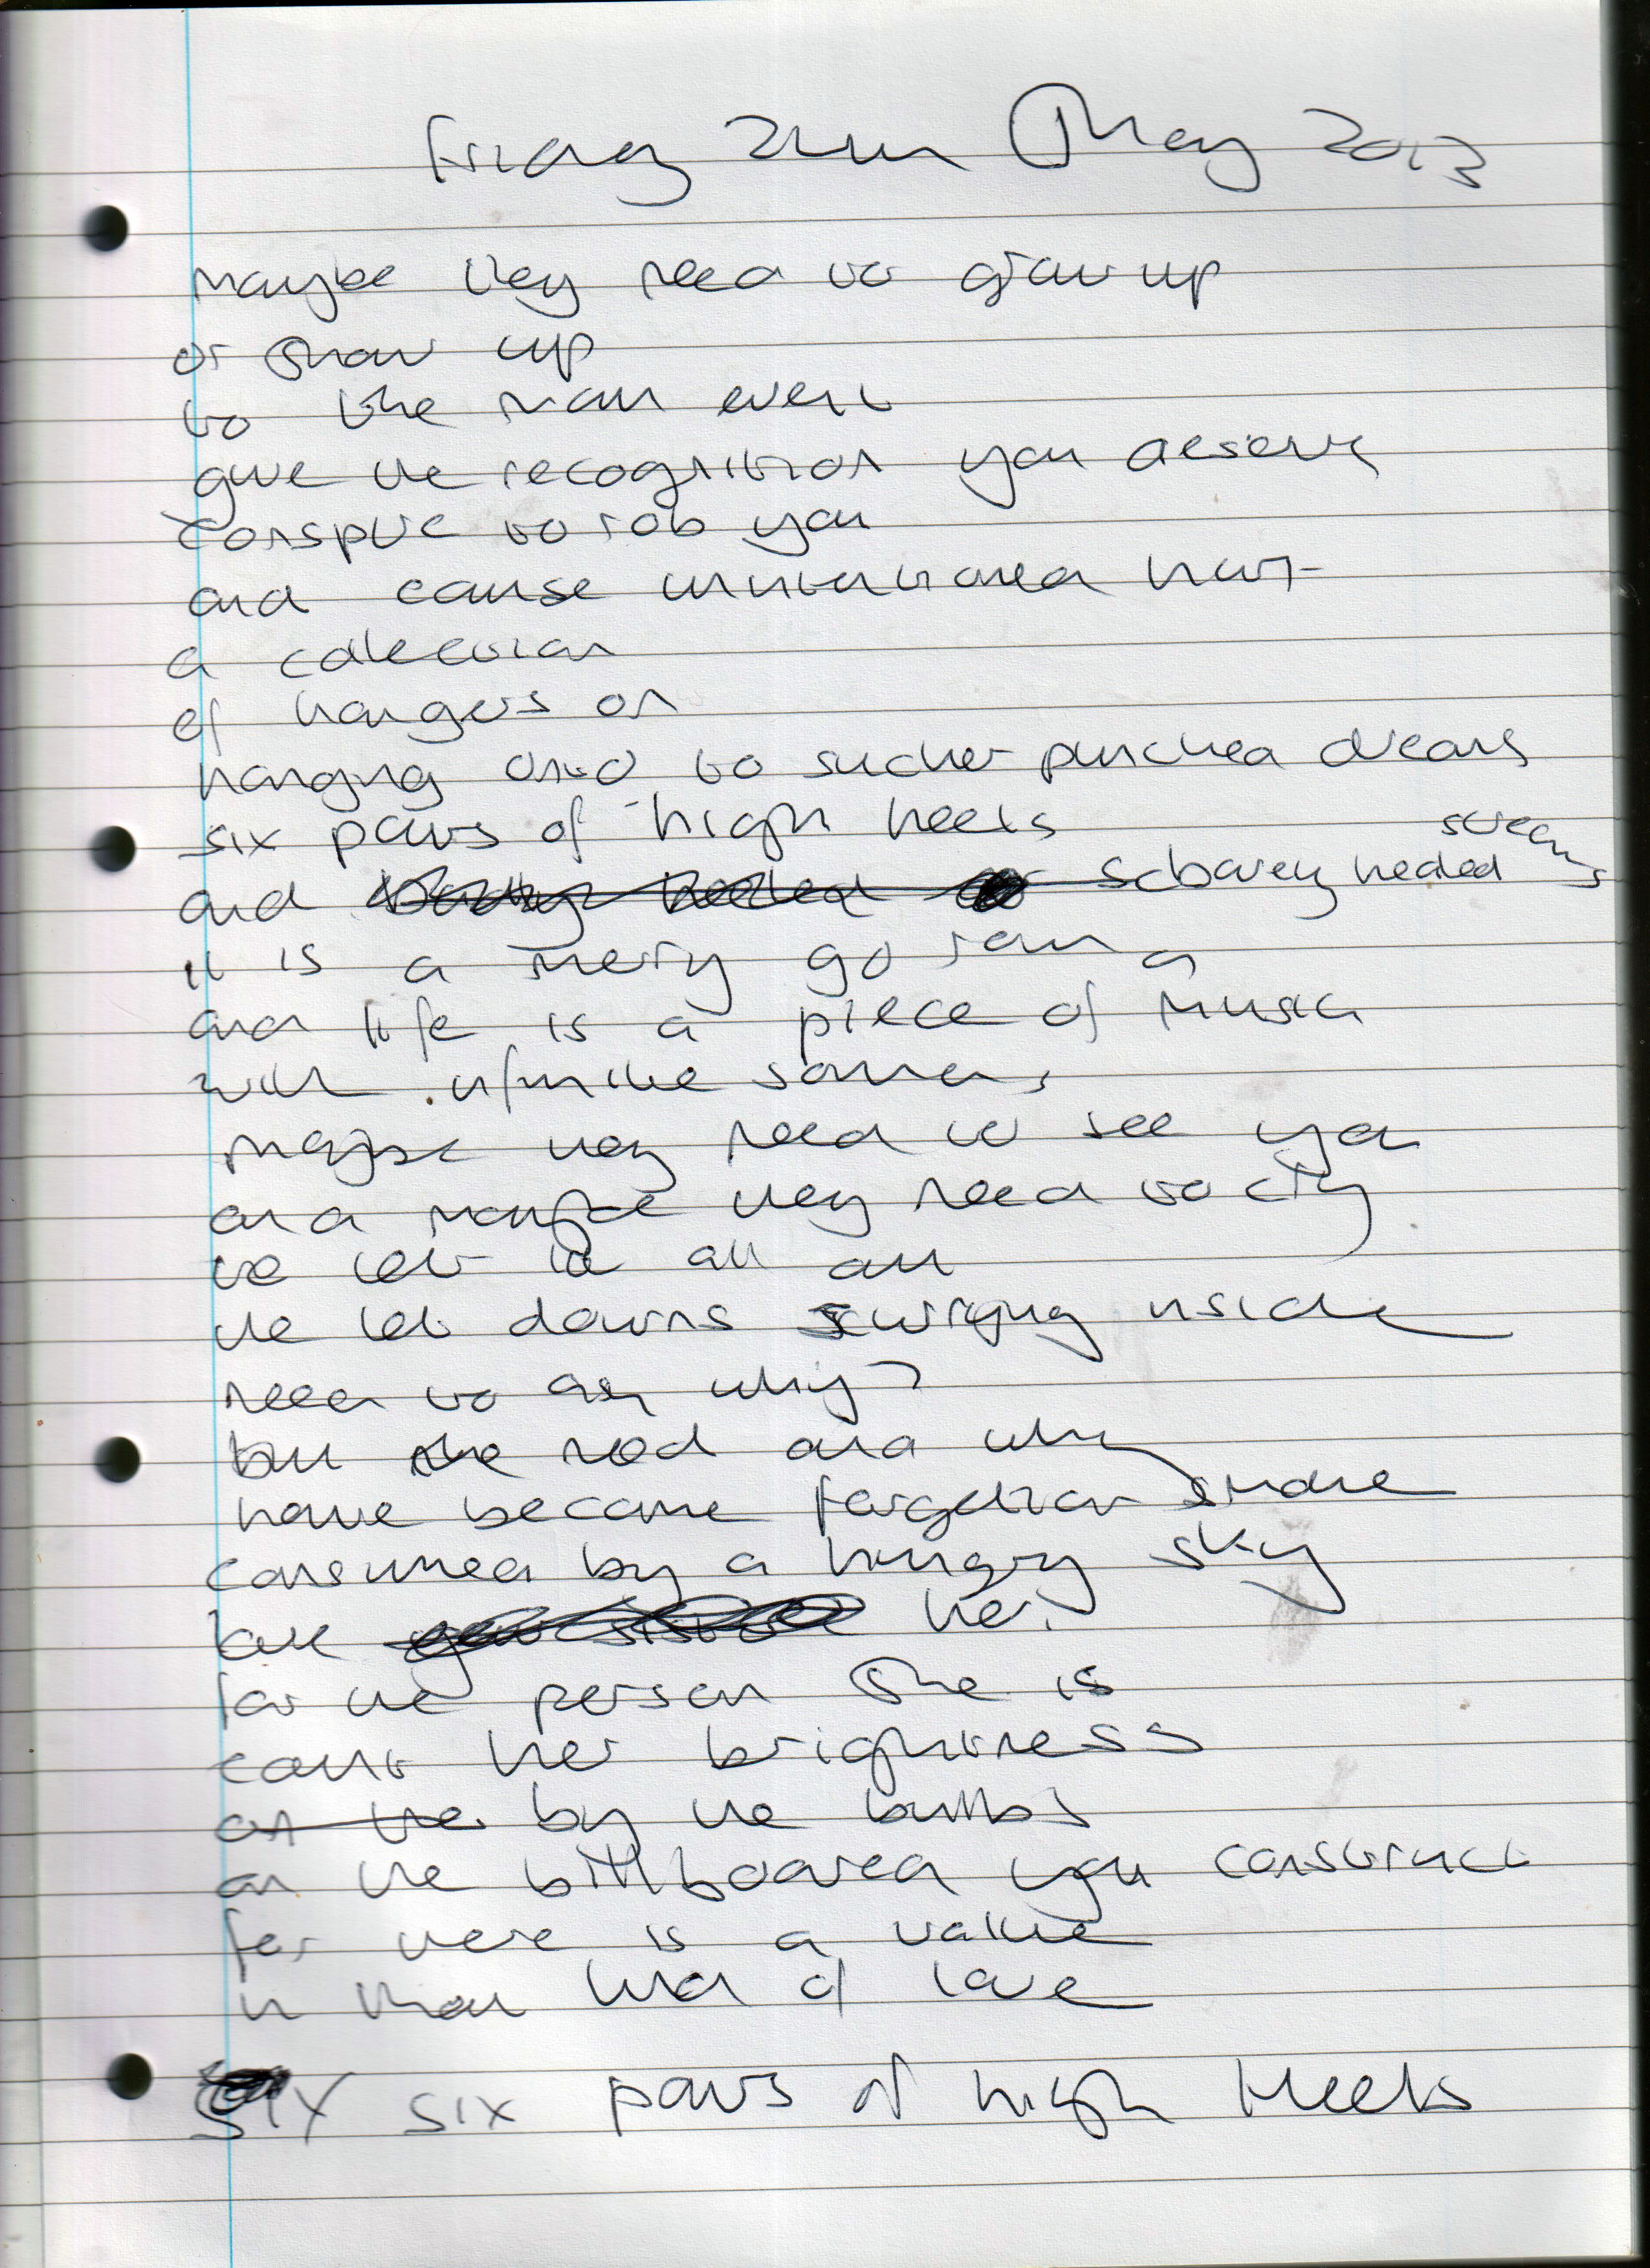 Friday May 2013
maybe they need to grow up
or show up
to the main event
give the recognition you deserve
conspire to rob you
and cause unintentioned hurt
a collection
of hangers on
hanging onto to sucker punched dreams
six pairs of high heels
and heeled screams
it is a merry go round
and life is a piece of music
with infinite sounds
maybe they need to see you
and maybe they need to cry
to let it all out
the let downs swinging inside
need to ask why?
but the and why
have become forgotten smoke
consumed by a hungry sky
love her
for the person she is
count her brightness
on the by the bulbs
on the billboard you construct
for there is a value
in that kind of love
six six pairs of high Heels